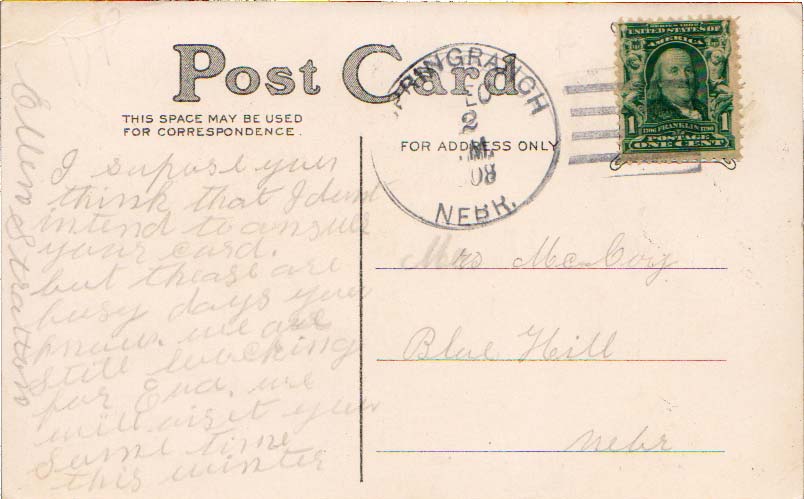 Post Card
THIS SPACE MAY BE USED
FOR CORRESPONDENCE.
FOR ADDRESS ONLY
SPRINGRANCH
DEC
2
M.
08
NEBR.
SERIES 1902
UNITED STATES OF
AMERICA
1 1
1706 FRANKLIN 1790
POSTAGE
ONE CENT
I supose you
think that I dont
intend to
your card.
but thease are
busy days you
know. we are
still
for End. we
will visit you
some time
this winter
Ellen Stratton
Mrs McCoy
Blue Hill
Nebr